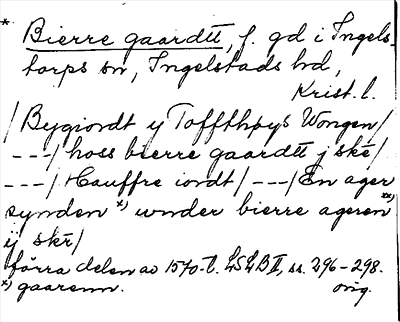 * Bierre gaardtt, f. gd i Ingels-
torps sn, Ingelstads hd,
Krist. l.
/ Bygiordt y Toffthøys Wongen /
---/ hoss bierre gaardtt j skē /
---/ Hauffre iordt / ---/ En ager
synden *) wnder bierre ageren **)
ij skē /
förra delen av 1570-t. LSLB II, ss. 296-298.
*) gaarenn. orig.